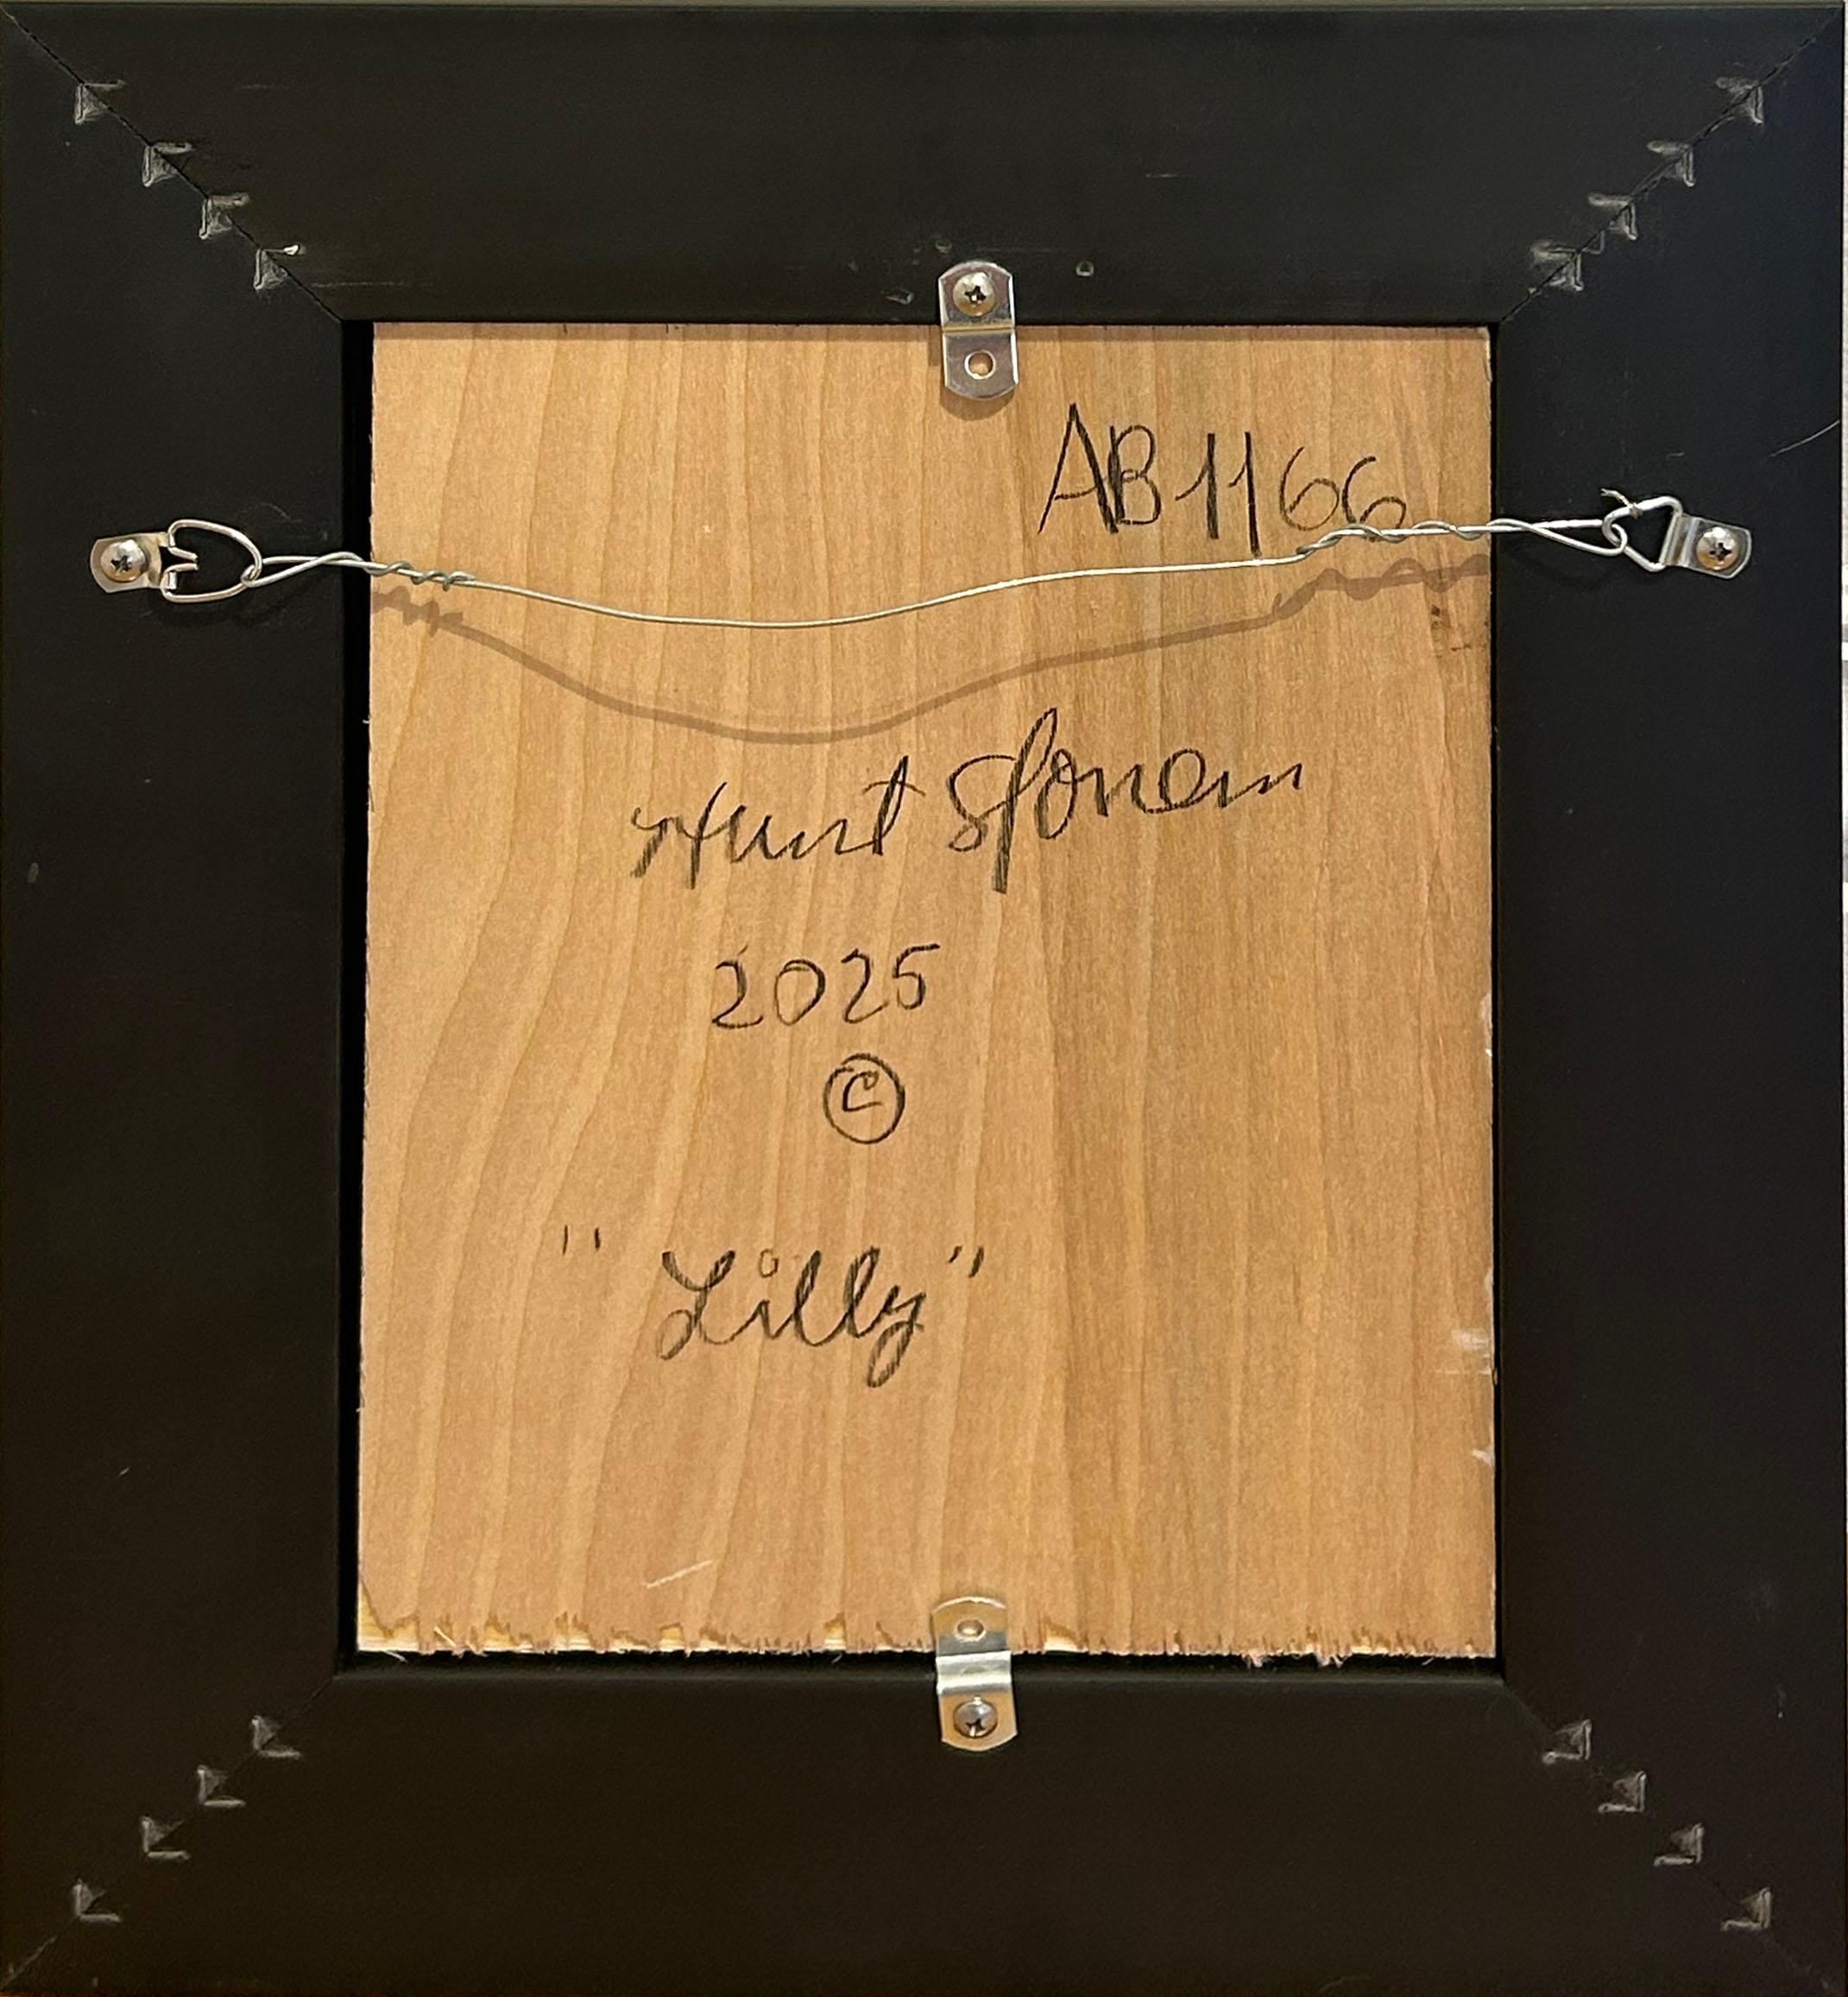 AB1166
Hunt Slonem
2025
©
"Lilly"